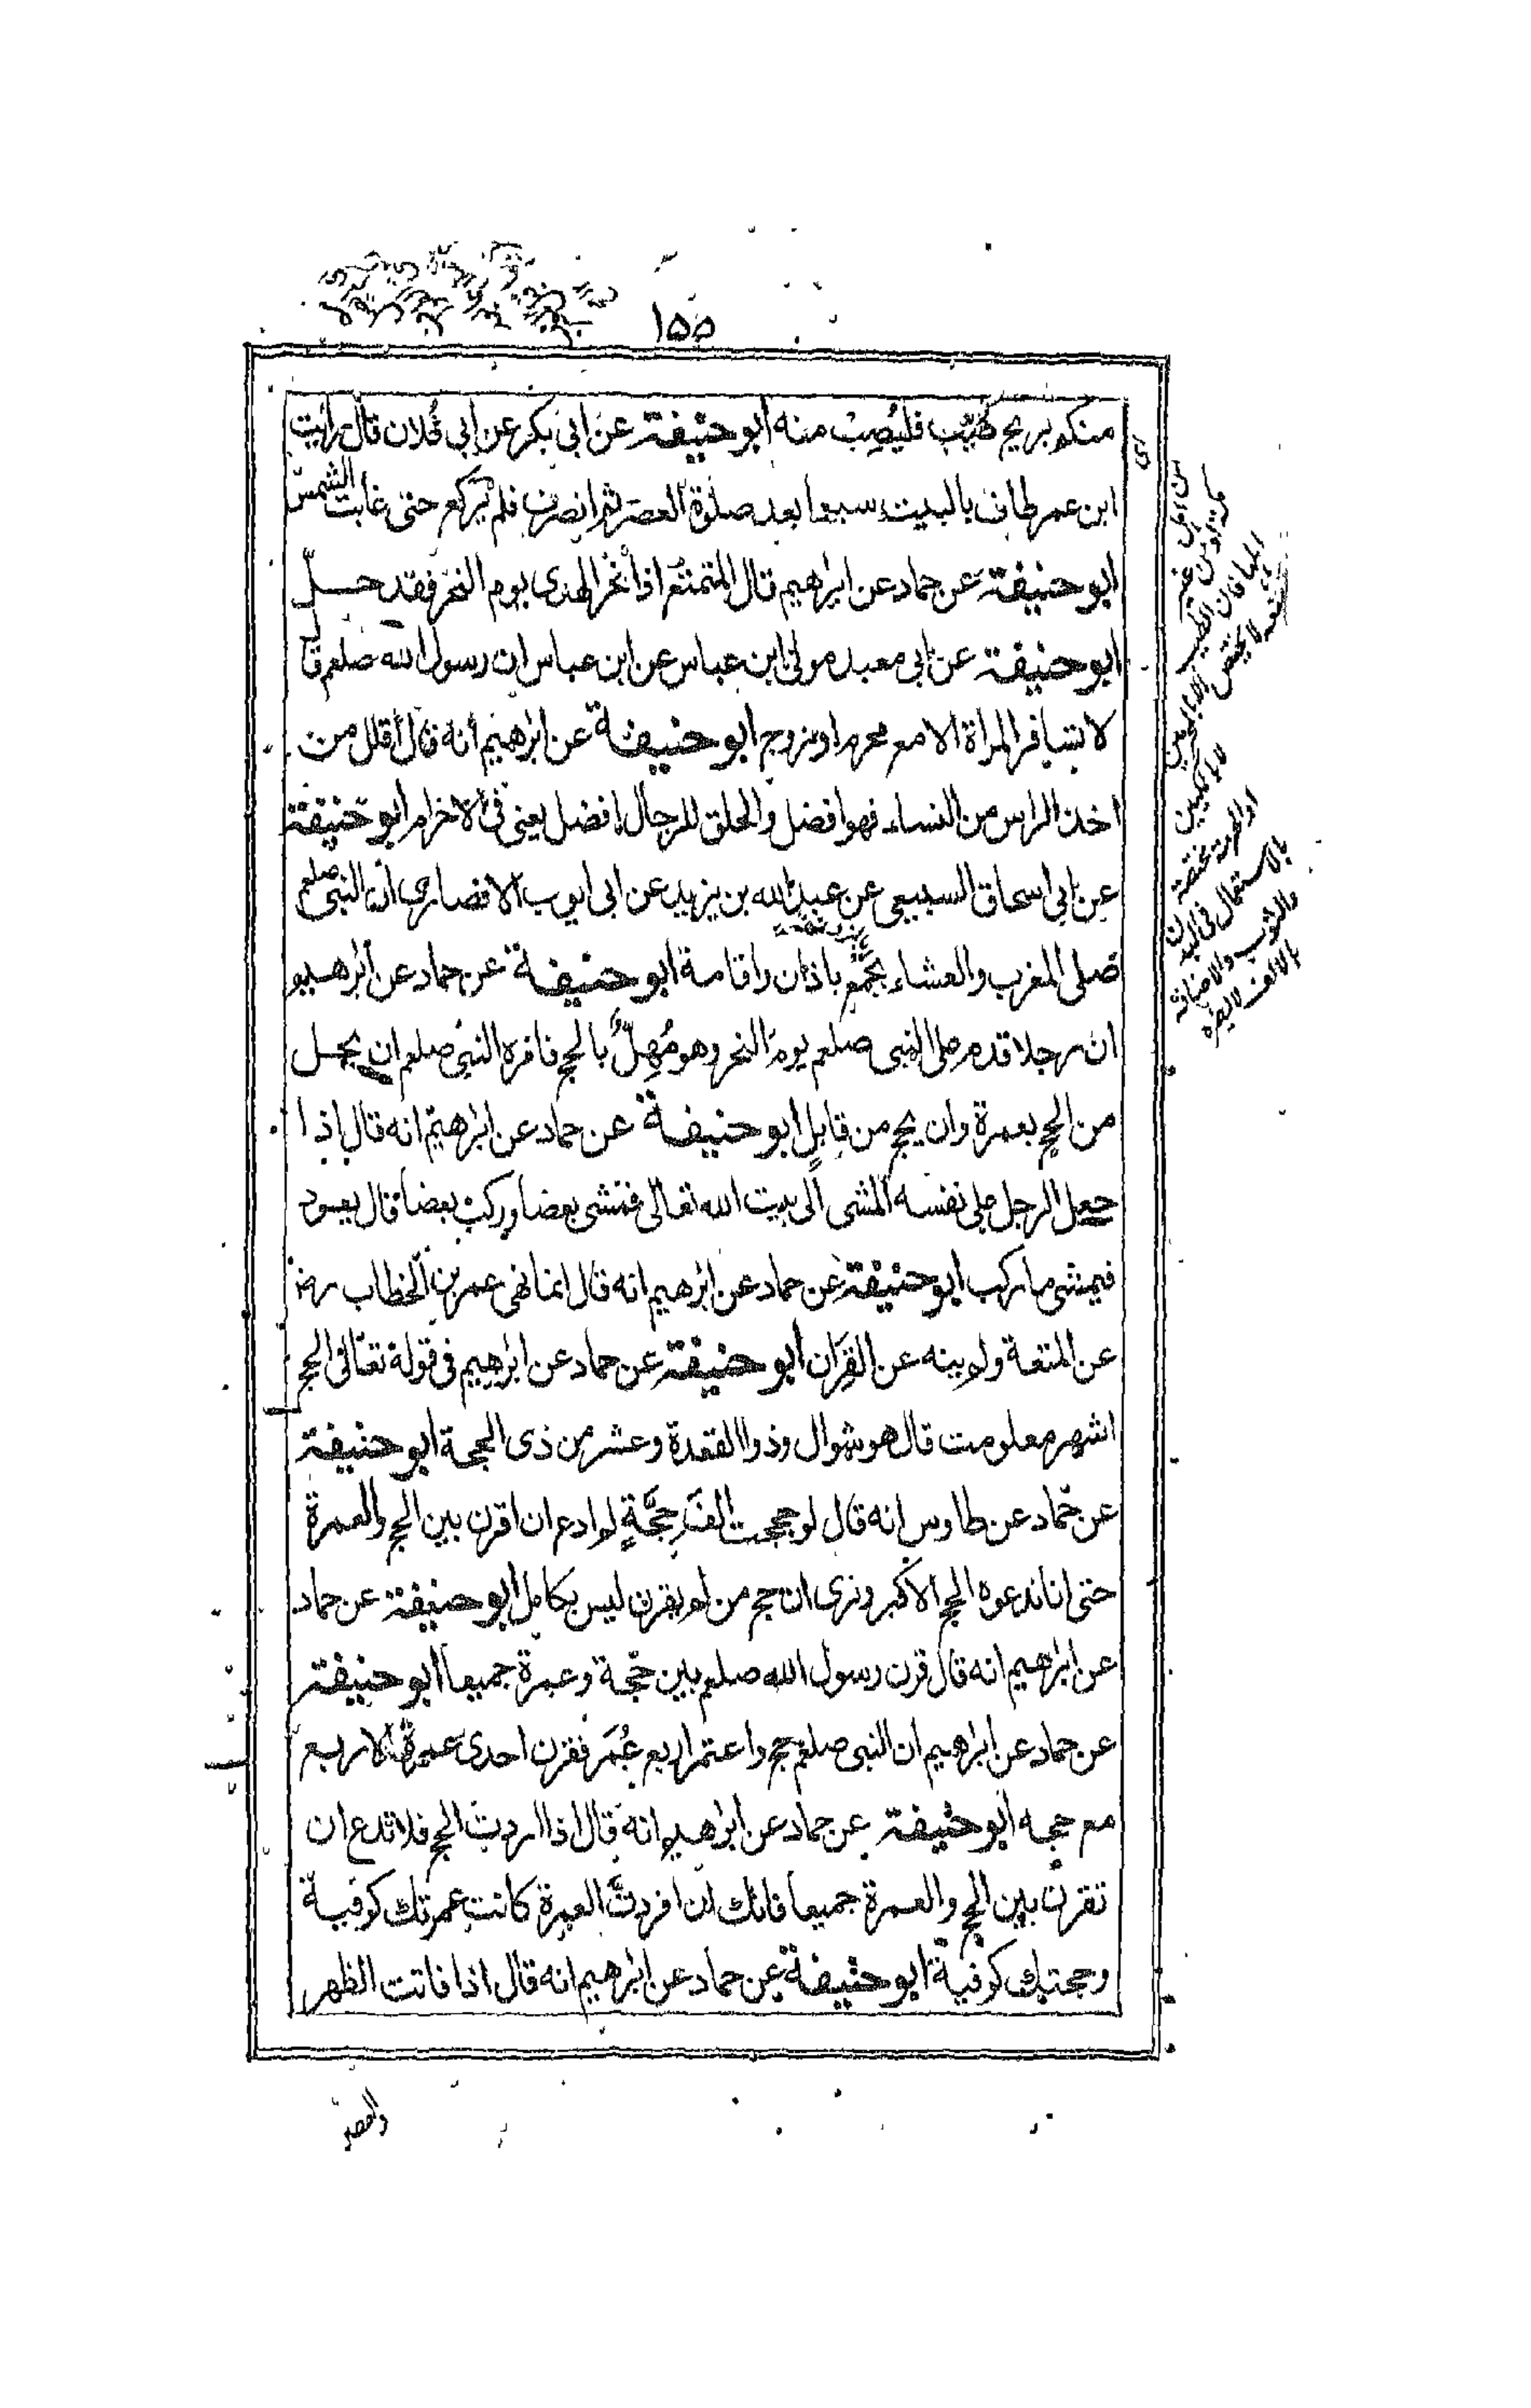 ١٥٥
منكم بريح طيب فليُصِبْ منه ابو حنيفة عن ابى بكر عن ابى فُلان قال رايت
ابن عمر طاف بالبيت سبعا بعد صلوة العصر ثم انصرف فلم يركع حتى غابت الشمس
ابو حنيفة عن حماد عن ابرهيم قال المتمتع اذا نحر الهدى يوم النحر فقد حل
ابو حنيفة عن ابى معبد مولى ابن عباس عن ابن عباس ان رسول الله صلعم قال
لا تسافر المراة الا مع محرم او زوج ابو حنيفة عن ابرهيم انه قال اقلل من
اخذ الراس من النساء فهو افضل والحلق للرجال افضل يعنى فى الاحرام ابو حنيفة
عن ابى اسحاق السبيعى عن عبد الله بن يزيد عن ابى ايوب الانصارى ان النبى صلعم
صلى المغرب والعشاء بجَمْعٍ باذان واقامة ابو حنيفة عن حماد عن ابرهيم
ان رجلا قدم على النبى صلعم يوم النحر وهو مُهِلٌّ بالحج فامره النبى صلعم ان يحل
من الحج بعمرة وان يحج من قابلٍ ابو حنيفة عن حماد عن ابرهيم انه قال اذا
جعل الرجل على نفسه المشى الى بيت الله تعالى فمشى بعضا وركب بعضا قال يعود
فيمشى ما ركب ابو حنيفة عن حماد عن ابرهيم انه قال انما نهى عمر بن الخطاب رض
عن المتعة ولم ينه عن القِرَان ابو حنيفة عن حماد عن ابرهيم فى قوله تعالى الحج
اشهر معلومت قال هو شوال وذوا القعدة وعشر من ذى الحجة ابو حنيفة
عن حماد عن طاوس انه قال لو حججت الفَ حِجَّةٍ لم ادع ان اقرن بين الحج والعمرة
حتى انا ندعوه الحج الاكبر ونرى ان حج من لم يقرن ليس بكامل ابو حنيفة عن حماد
عن ابرهيم انه قال قرن رسول الله صلعم بين حجة وعمرة جميعا ابو حنيفة
عن حماد عن ابرهيم ان النبى صلعم حج واعتمر اربع عُمَر فقرن احدى عمره الاربع
مع حجه ابو حنيفة عن حماد عن ابرهيم انه قال اذا اردت الحج فلا تدع ان
تقرن بين الحج والعمرة جميعا فانك ان افردتَّ العمرة كانت عمرتك كوفية
وحجتك كوفية ابو حنيفة عن حماد عن ابرهيم انه قال اذا فاتت الظهر
والعصر